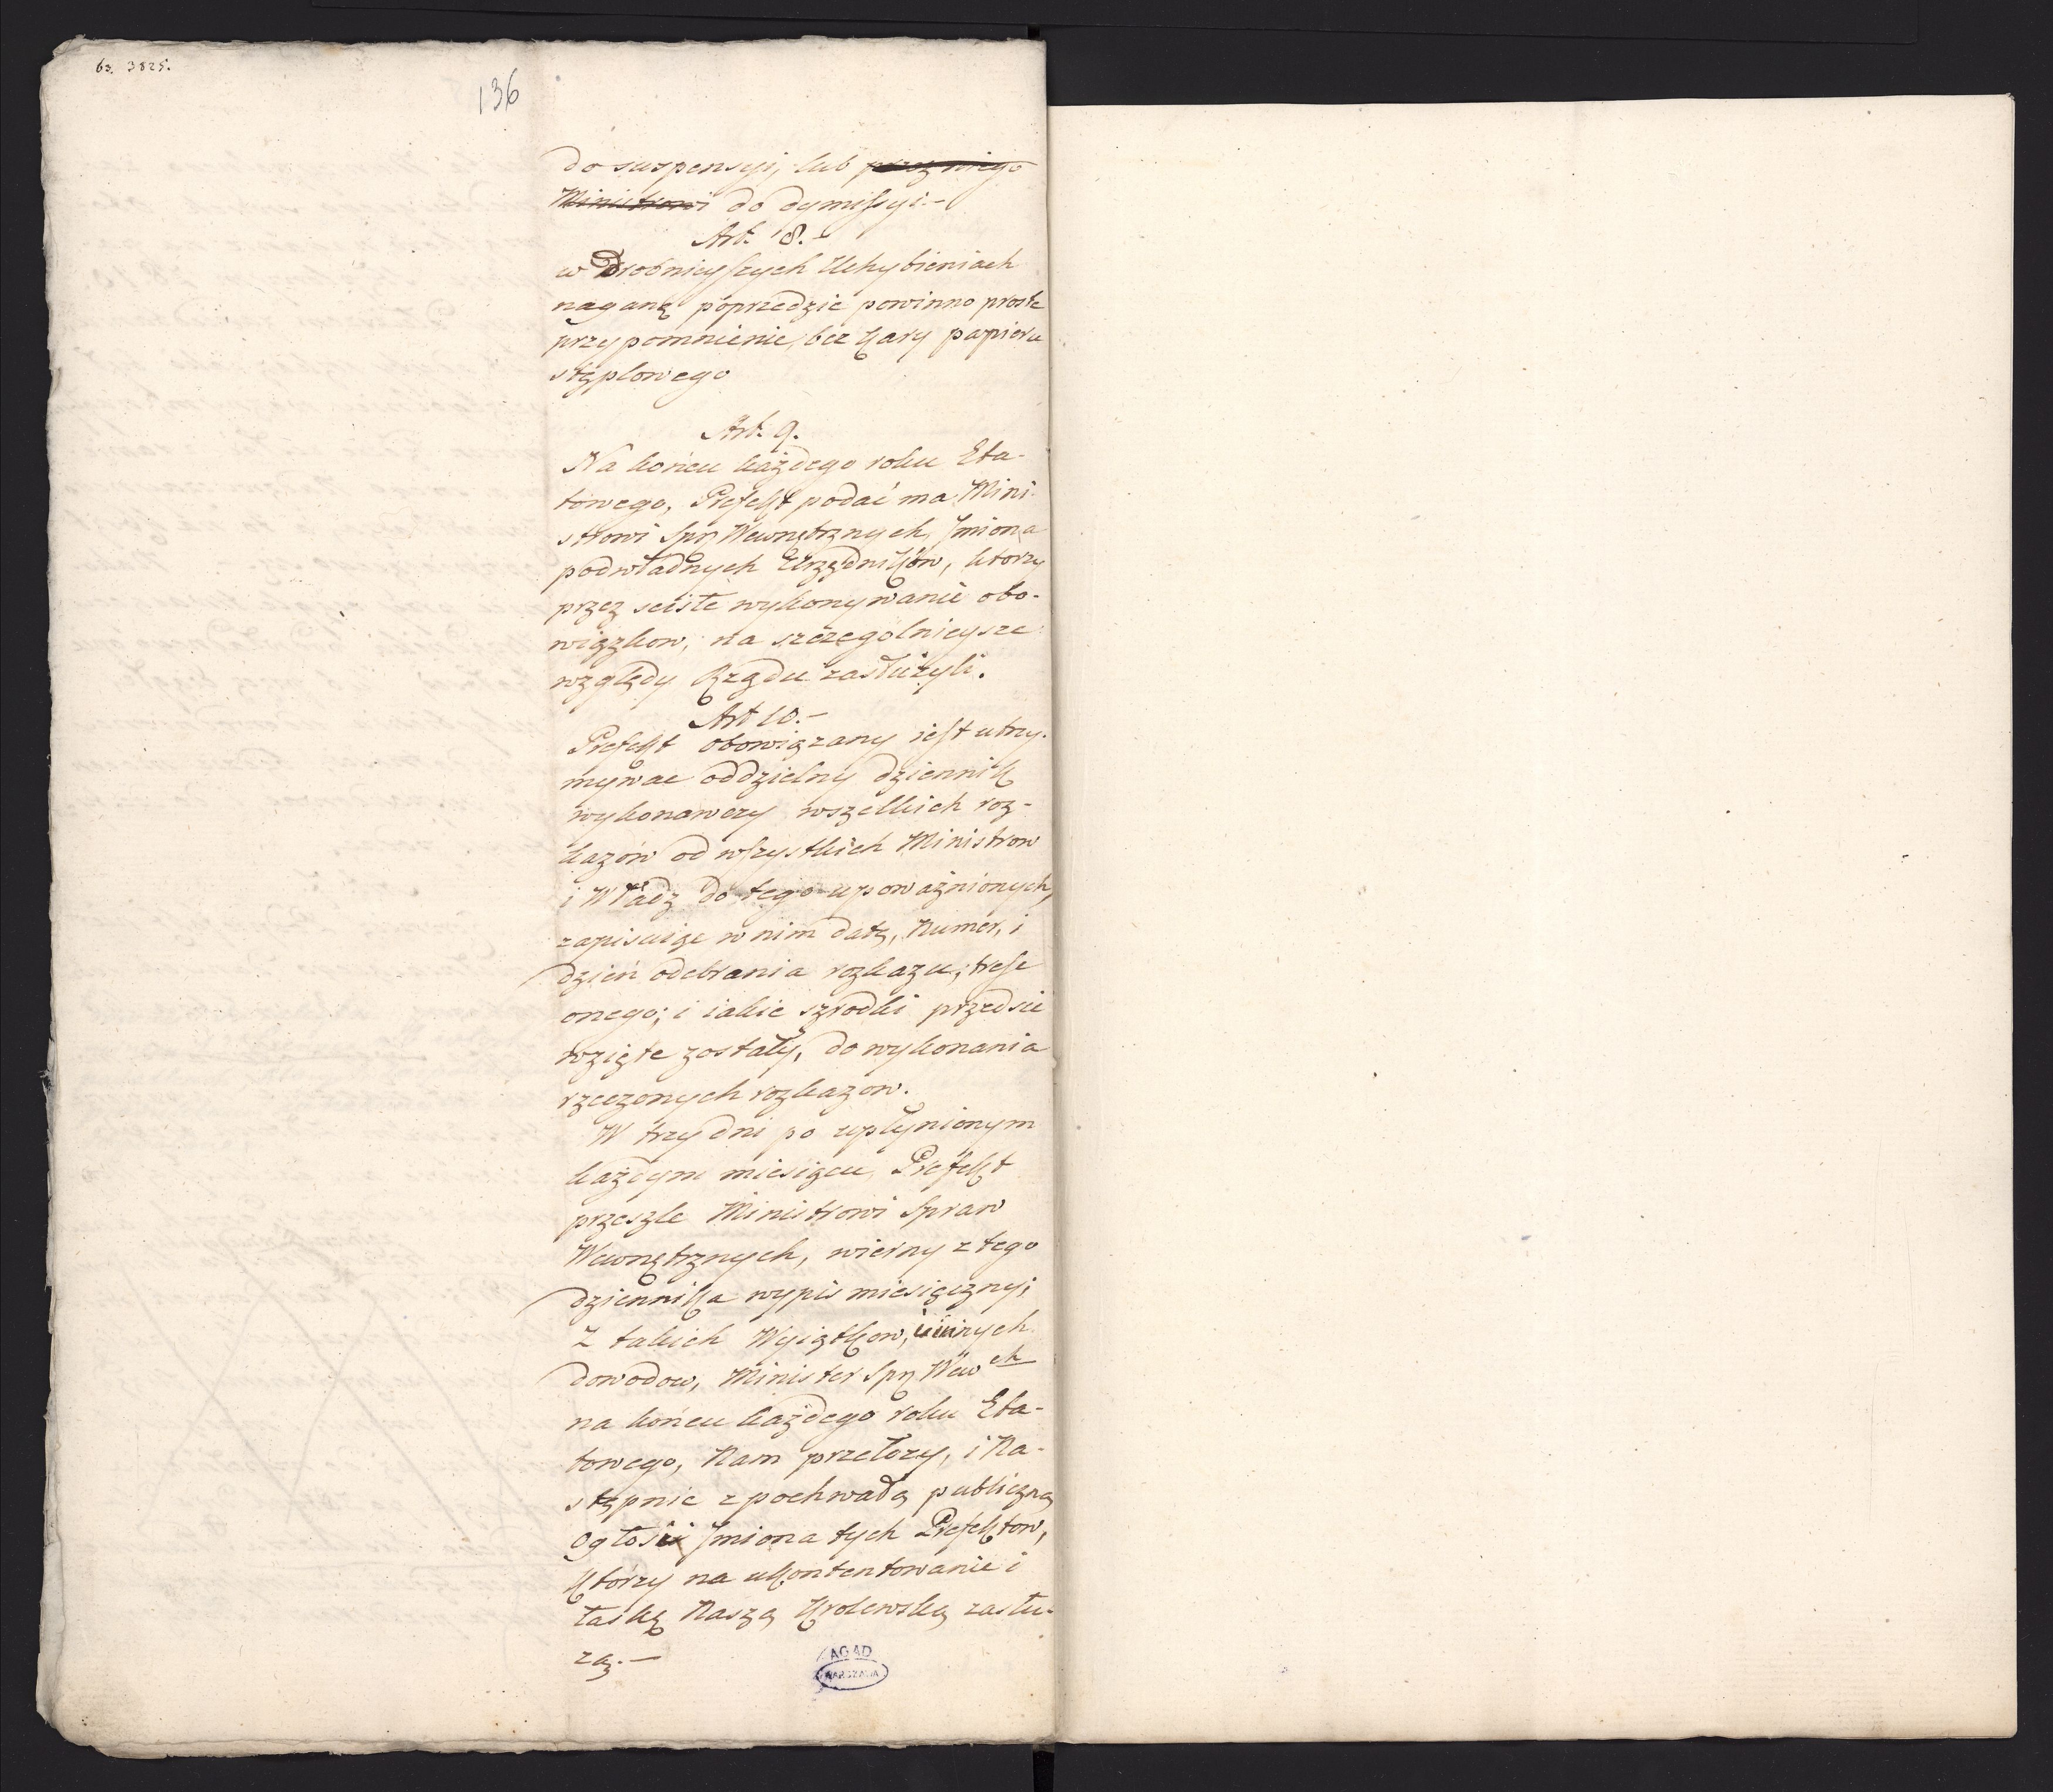 63. 3825.
136
do suspensyi, lub przez niego
Ministrowi do dymissyi.-
Art. 8.-
w Drobnieyszych Uchybieniach
naganę poprzedzić powinno proste
przypomnienie, bez kary papieru
stęplowego
Art. 9.
Na końcu każdego roku Eta-
towego, Prefekt podać ma Mini-
strowi Spr. Wewnętrznych, Jmiona
podwładnych Urzędników, ktorzy
przez scisłe wykonywanie obo-
wiązkow, na szczegolnieysze
względy Rządu zasłużyli.
Art 10.-
Prefekt obowiązany iest utrzy-
mywac oddzielny dziennik
wykonawczy wszelkich roz-
kazów od wszystkich Ministrow
i Władz do tego upoważnionych,
zapisuiąc w nim datę, Numer, i
dzień odebrania rozkazu; tresc
onego; i iakie szrodki przedsie
wzięte zostały, do wykonania
rzeczonych rozkazow.
W trzy dni po upłynionym
każdym miesiącu, Prefekt
przeszle Ministrowi Spraw
Wewnętrznych, wierny z tego
dziennika wypis miesięczny;
Z takich Wyiątkow, i innych
dowodow, Minister Spr. Wew ch
na końcu każdego roku Eta-
towego, Nam przełoży, i Na-
stępnie z pochwałą publiczną
Ogłosi Jmiona tych Prefektow,
Ktorzy na ukontentowanie i
łaskę Naszą Krolewską zasłu-
żą.-
AGAD
WARSZAWA